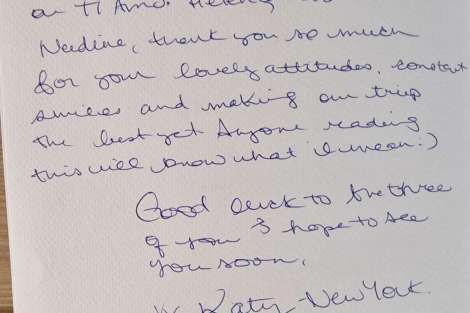 on Ti Amo. Helena,
Nadine, thank you so much
for your lovely attitudes, constant
smiles and making our trip
the best yet Anyone reading
this will know what I mean :)
Good luck to the three
of you & hope to see
you soon.
Katy - New York.